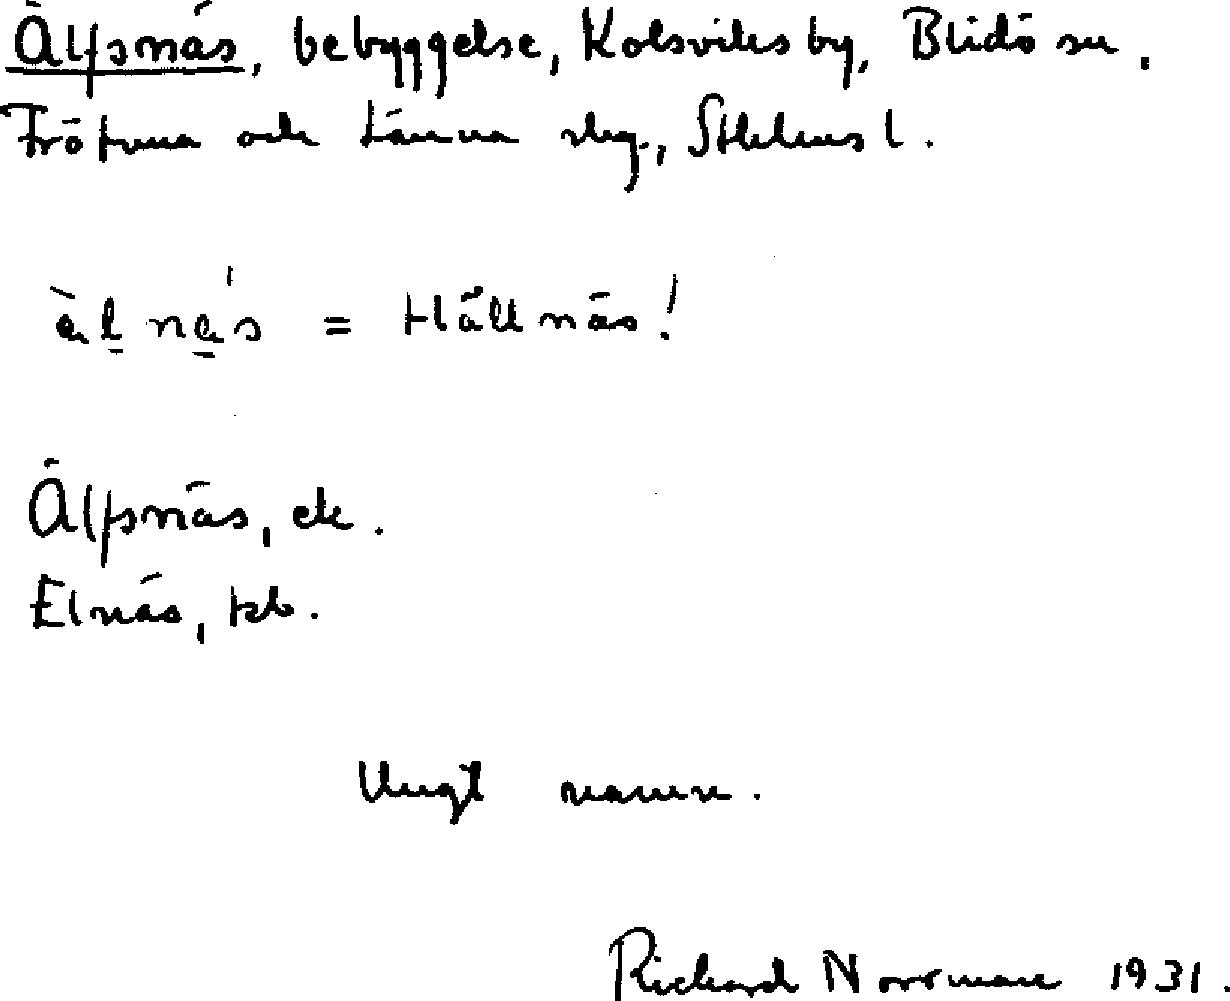 Älfsnäs, bebyggelse, Kolsviks by, Blidö sn.
Frötuna och Länna slg., Sthlms l.
= Hällnäs!
Älfsnäs, ek.
Elnäs, kb.
Ungt namn.
Rickard Norrman 1931.